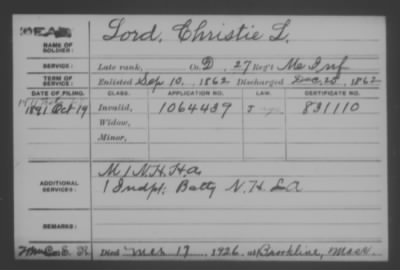 DEAD
NAME OF SOLDIER: Lord, Christie L.
SERVICE: Late rank, Co. D, 27 Reg't Me Inf
TERM OF SERVICE: Enlisted Sep 10, 1862 Discharged Dec. 20, 1862
DATE OF FILING. CLASS. APPLICATION NO. LAW. CERTIFICATE NO.
1891 Oct 19 Invalid, 1064439 J 831110
Widow,
Minor,
ADDITIONAL SERVICES: M 1 N.H. H.A.
1 Indpt. Batty N.H. L A
REMARKS:
Died Mar 17 1926, at Brookline, Mass.